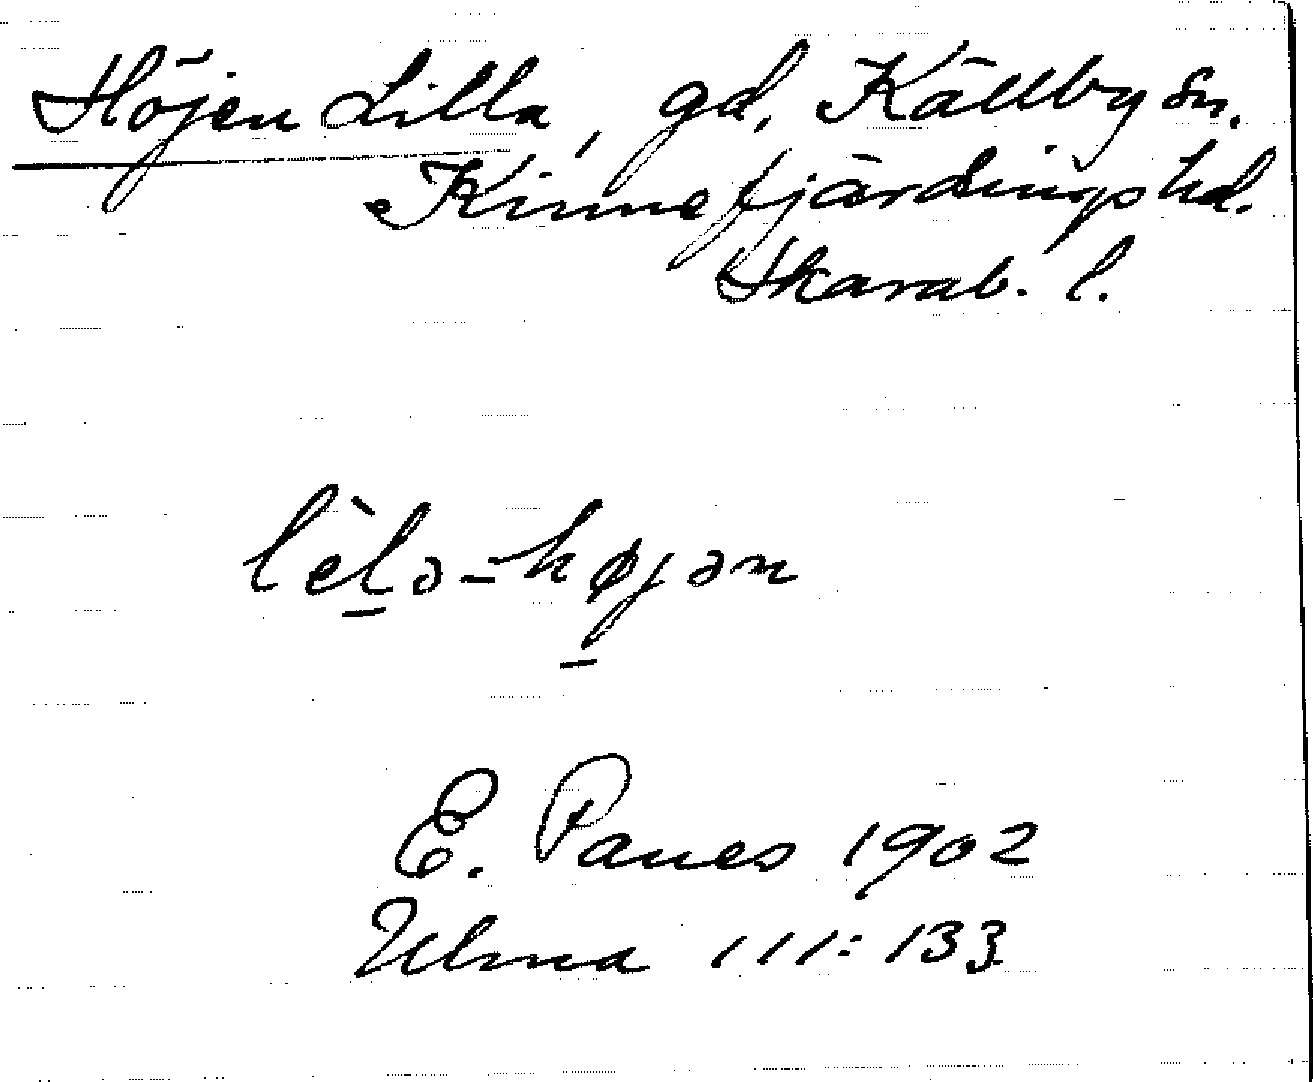 Höjen Lilla, gd, Källby sn.
Kinnefjärdings hd.
Skarab. l.
lèlə-højən
E. Panes 1902
Ulma 111:133